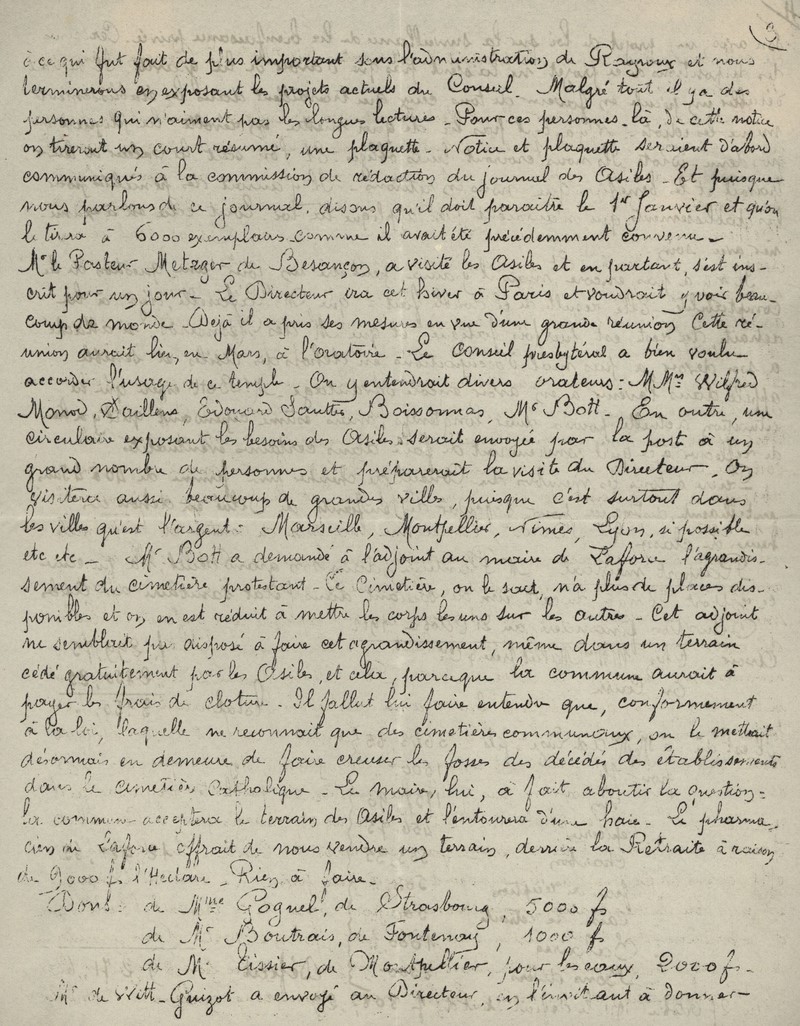 3
à ce qui fut fait de plus important sous l'administration de Rayroux et nous
terminerons en exposant les projets actuels du Conseil. Malgré tout il y a des
personnes qui n'aiment pas les longues lectures - Pour ces personnes-là, de cette notice
on tirerait un court résumé, une plaquette - Notice et plaquette seraient d'abord
communiqués à la commission de rédaction du journal des Asiles - Et puisque
nous parlons de ce journal, disons qu'il doit paraitre le 1er Janvier et qu'on
le tirera à 6000 exemplaires comme il avait été précédemment convenu -
Mr le Pasteur Metzger de Besançon, a visité les Asiles et en partant, s'est ins-
crit pour un jour - Le Directeur ira cet hiver à Paris et voudrait y voir beau-
coup de monde - Déjà il a pris ses mesures en vue d'une grande réunion Cette ré-
union aurait lieu, en Mars, à l'oratoire - Le Conseil presbytéral a bien voulu
accorder l'usage de ce temple - On y entendrait divers orateurs : MMrs Wilfred
Monod, Edouard Sautter, Boissonnas, Mr Bott - En outre, une
circulaire exposant les besoins des Asiles serait envoyée par la post à un
grand nombre de personnes et préparerait la visite du Directeur. On
visitera aussi beaucoup de grandes villes, puisque c'est surtout dans
les villes qu'est l'argent : Marseille, Montpellier, Nîmes, Lyon, si possible
etc etc - Mr Bott a demandé à l'adjoint au maire de Laforce l'agrandis-
sement du cimetière protestant - Ce Cimetière, on le sait, n'a plus de places dis-
ponibles et on en est réduit à mettre les corps les uns sur les autres - Cet adjoint
ne semblait pas disposé à faire cet agrandissement, même dans un terrain
cédé gratuitement par les Asiles, et cela, parce que la commune aurait à
payer les frais de cloture - Il fallut lui faire entendre que, conformement
à la loi, laquelle ne reconnait que des cimetières communaux, on le mettrait
désormais en demeure de faire creuser les fosses des décédés des établissements
dans le cimetière Catholique - Le maire, lui, a fait aboutir la question :
la commune acceptera le terrain des Asiles et l'entourera d'une haie - Le pharma-
cien de Laforce offrait de nous vendre un terrain, derrière la Retraite à raison
de 9000 f l'Hectare - Rien à faire -
Dons : de Mme Goguel, de Strasbourg, 5000 f
de Mr Boutrais, de Fontenay, 1000 f
de Mr Tissier, de Montpellier, pour les eaux, 2000 f -
Mr de Witt-Guizot a envoyé au Directeur, en l'invitant à donner -